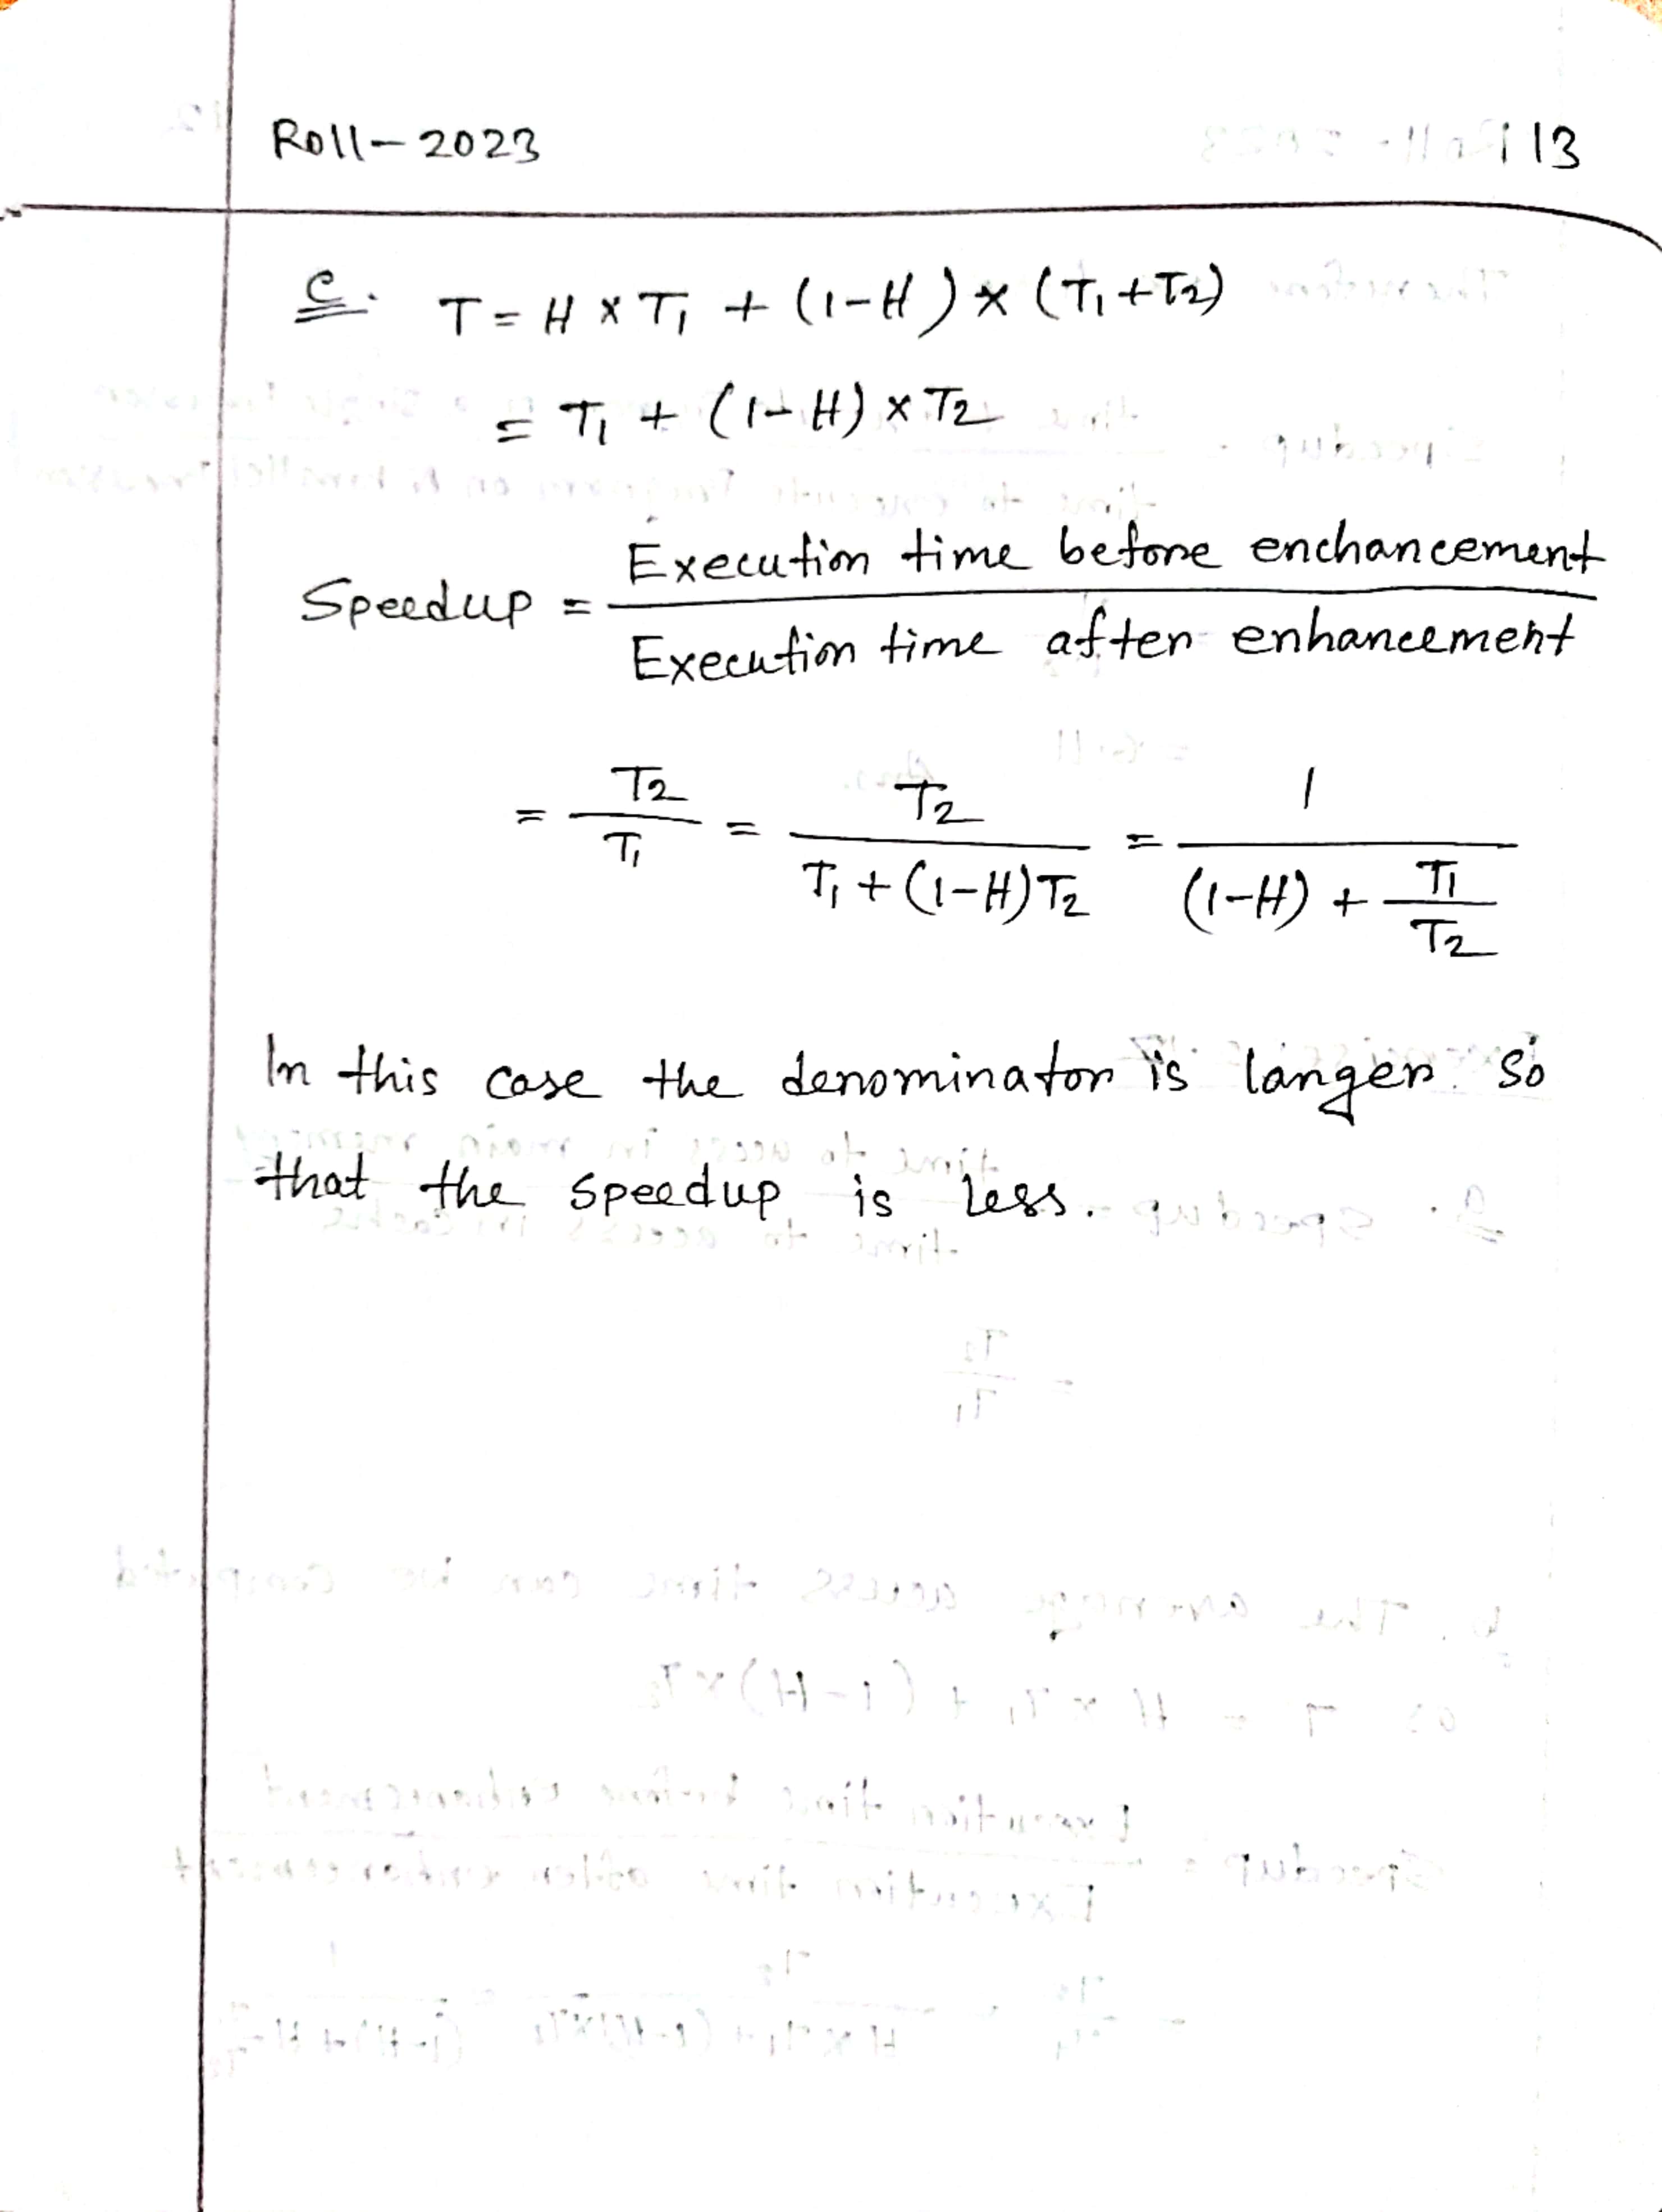 Roll-2023
13
c. T = H × T₁ + (1-H) × (T₁+T₂)
= T₁ + (1-H) × T₂
Speedup = Execution time before enchancement / Execution time after enhancement
= T₂/T₁ = T₂/(T₁+(1-H)T₂) = 1/((1-H) + T₁/T₂)
In this case the denominator is larger so
that the speedup is less.